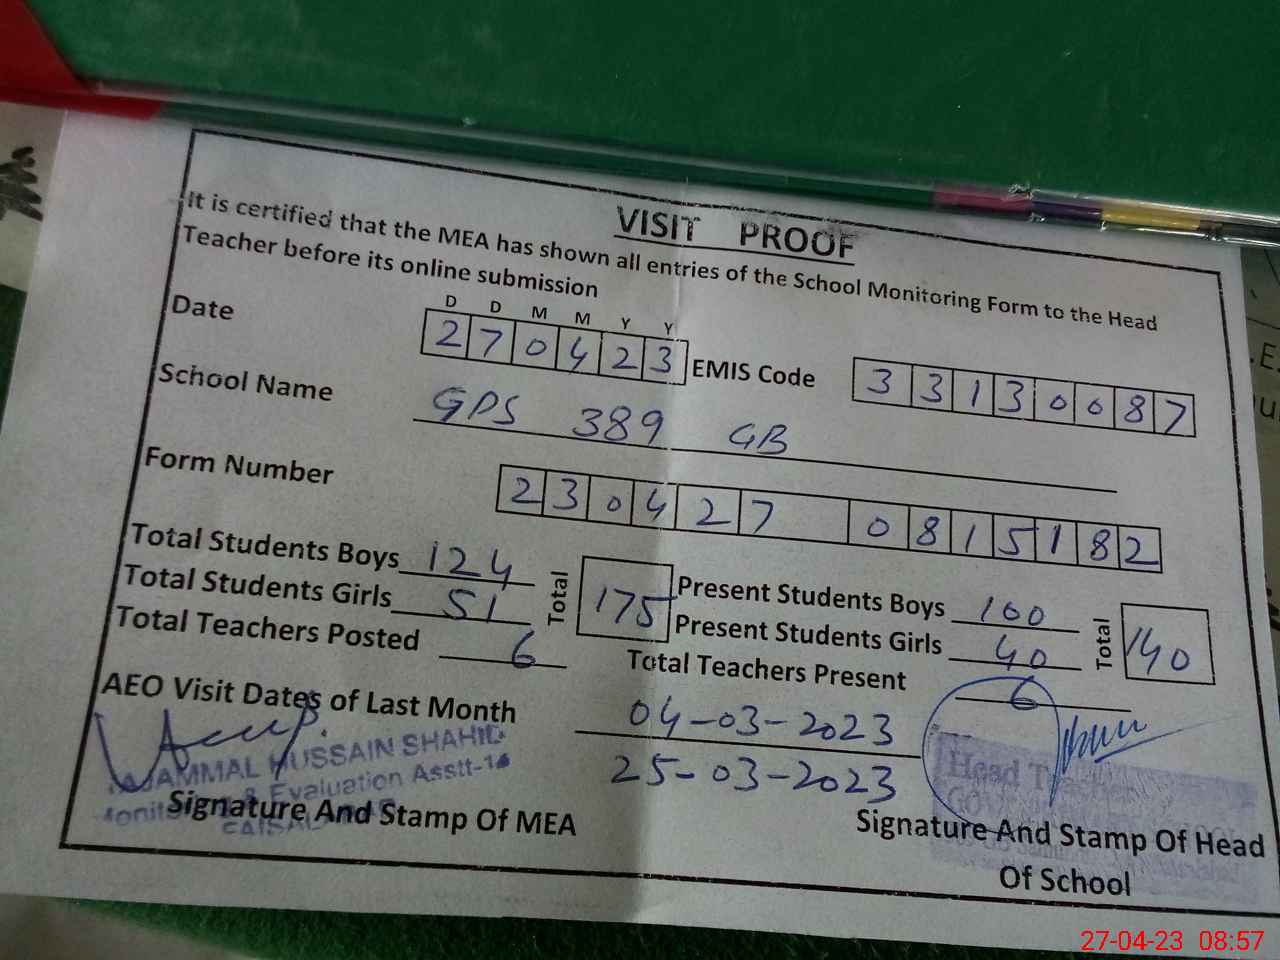 VISIT PROOF
It is certified that the MEA has shown all entries of the School Monitoring Form to the Head
Teacher before its online submission
D D M M Y Y
Date 2 7 0 4 2 3 EMIS Code 3 3 1 3 0 0 8 7
School Name GPS 389 GB
Form Number 2 3 0 4 2 7 0 8 1 5 1 8 2
Total Students Boys 124 Total 175 Present Students Boys 100 Total 140
Total Students Girls 51 Present Students Girls 40
Total Teachers Posted 6 Total Teachers Present 6
AEO Visit Dates of Last Month 04-03-2023
25-03-2023
HUSSAIN SHAHID
Evaluation Asstt-
Head Teacher
Signature And Stamp Of MEA
Signature And Stamp Of Head
Of School
27-04-23 08:57